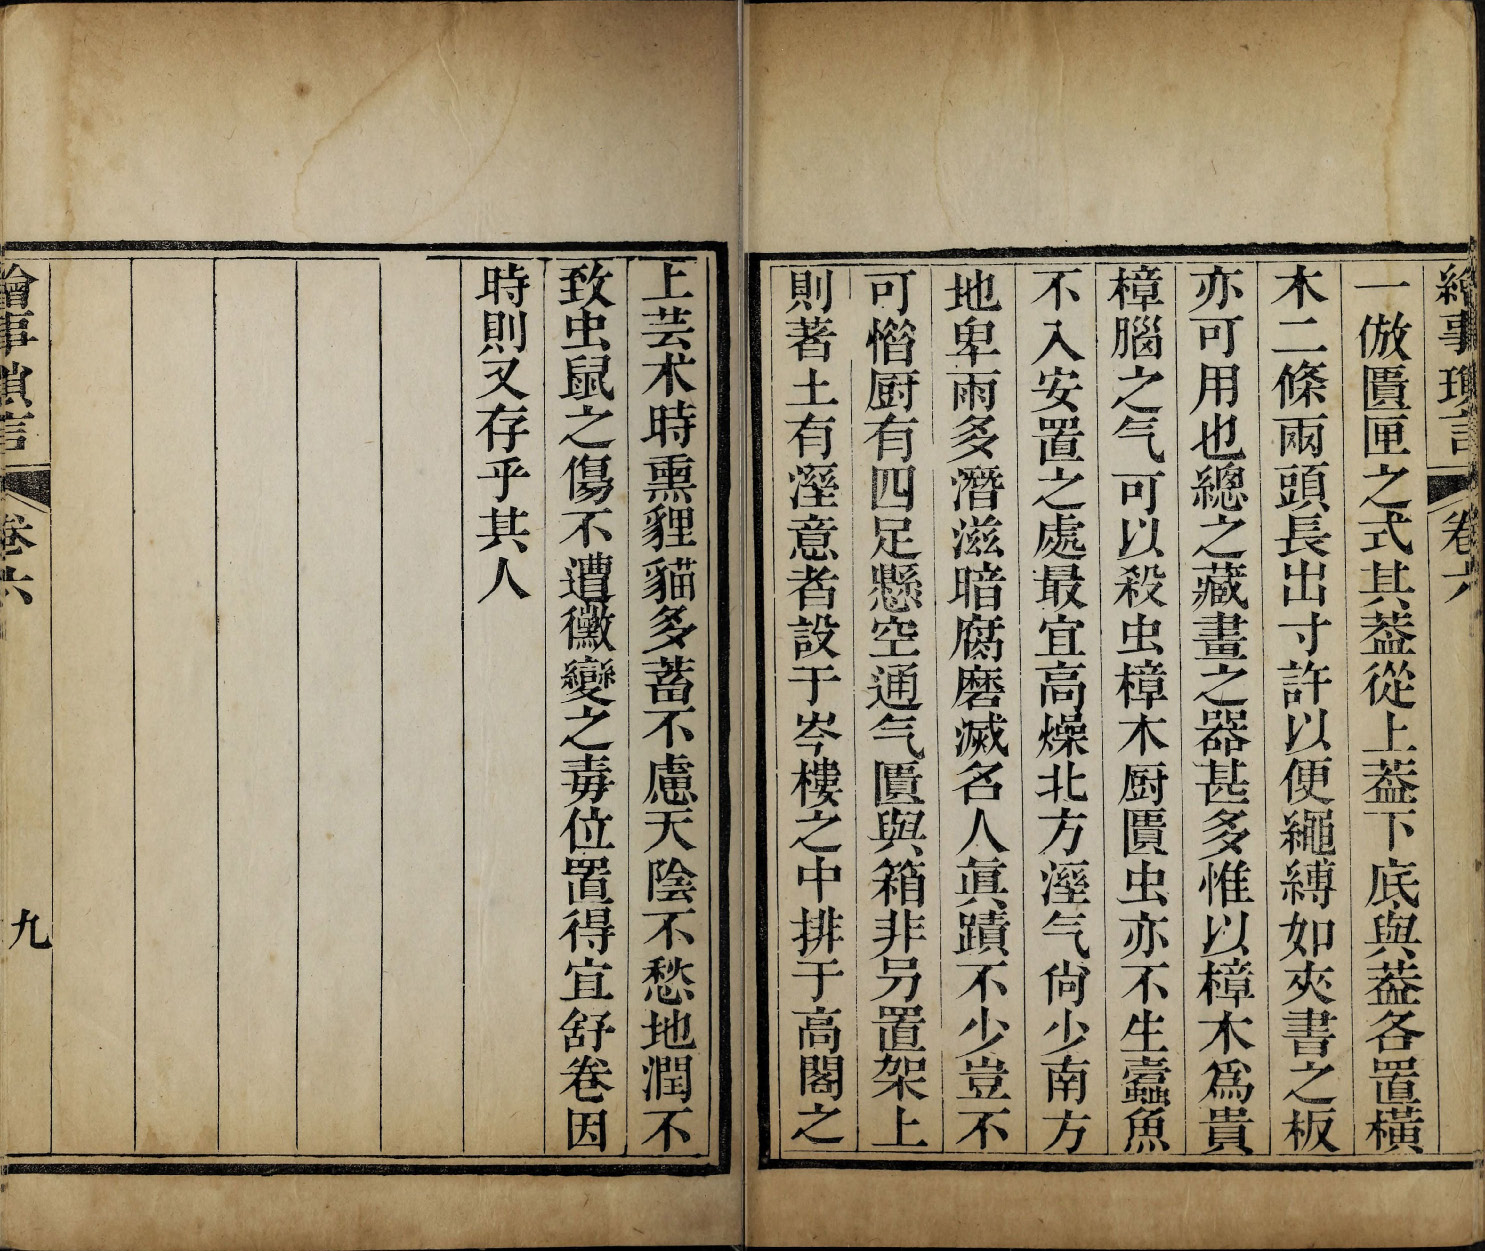 繪事瑣言 卷六
一倣匱匣之式其葢從上葢下底與葢各置橫
木二條兩頭長出寸許以便繩縛如夾書之板
亦可用也總之藏畫之器甚多惟以樟木爲貴
樟腦之气可以殺虫樟木厨匱虫亦不生蠹魚
不入安置之處最宜高燥北方溼气尙少南方
地卑雨多潛滋暗腐磨滅名人眞蹟不少豈不
可惜厨有四足懸空通气匱與箱非另置架上
則著土有溼意者設于岑樓之中排于高閣之
上芸术時熏貍貓多蓄不慮天陰不愁地潤不
致虫鼠之傷不遭黴變之毒位置得宜舒卷因
時則又存乎其人
繪事瑣言 卷六 九